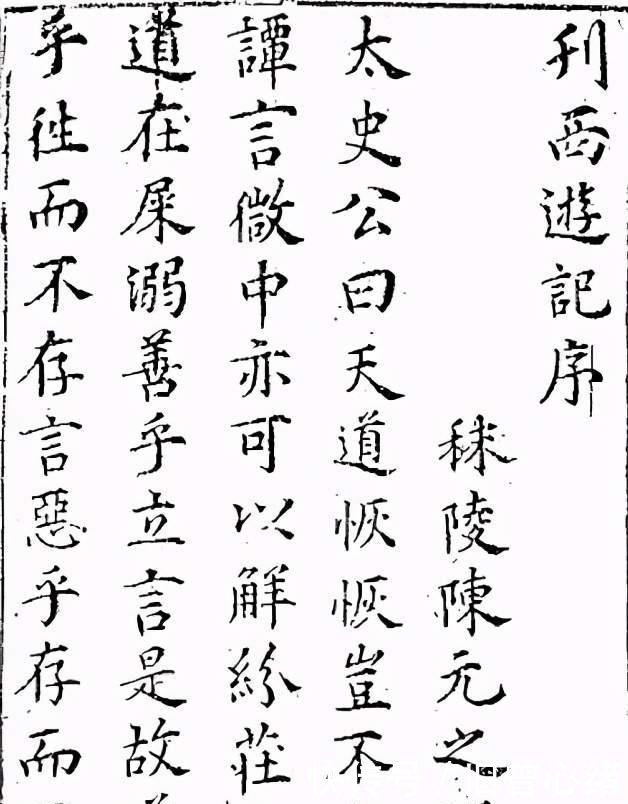 刊西遊記序
秣陵陳元之
太史公曰天道恢恢豈不
譚言微中亦可以解紛莊
道在屎溺善乎立言是故
乎徃而不存言惡乎存而